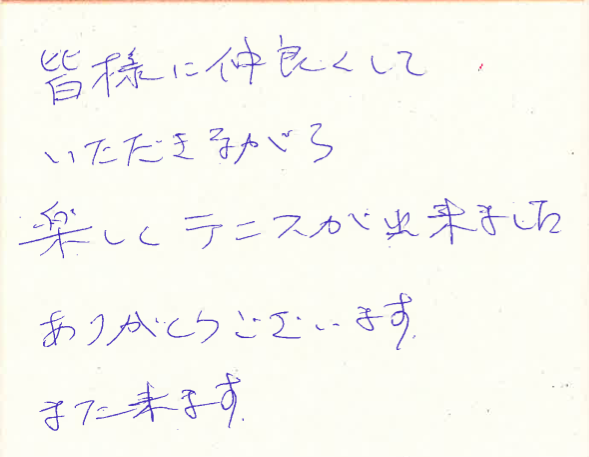 皆様に仲良くして
いただきながら
楽しくテニスが出来ました
ありがとうございます.
また来ます.